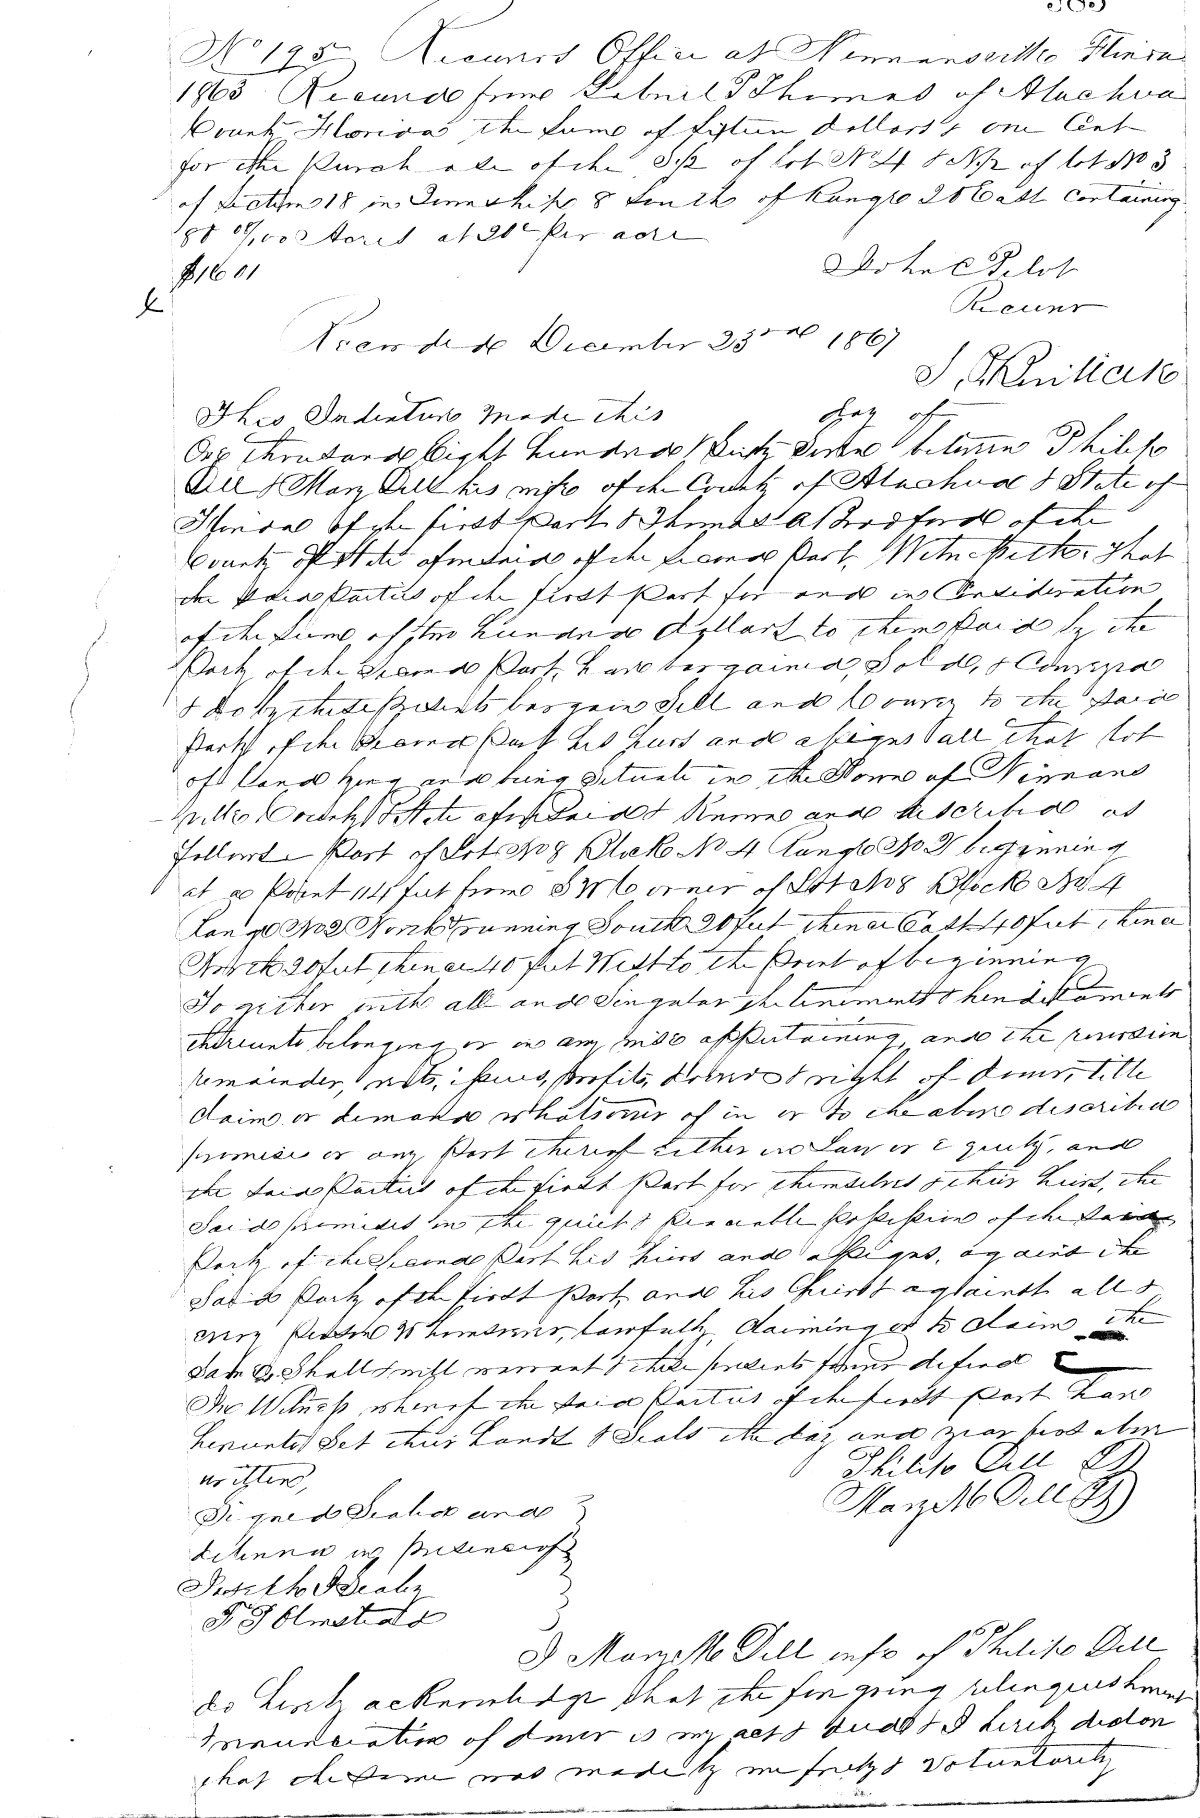 No 195 Receivers Office at Newnansville Florida
1863 Received from Gabriel P Thomas of Alachua
County Florida the Sum of fifteen dollars & one Cent
for the Purchase of the S½ of lot No 4 & N½ of lot No 3
of Section 18 in Township 8 South of Range 20 East Containing
80 Acres at 20c Per acre
$16 01
John C Pelot
Receiver
Recorded December 23rd 1867
This Indenture Made this day of
One thousand Eight hundred & Sixty Seven between Philip
Dell & Mary Dell his wife of the County of Alachua & State of
Florida of the first Part & Thomas A Bradford of the
County & State aforesaid of the Second Part, Witnesseth. That
the Said Parties of the first Part for and in Consideration
of the Sum of Two hundred dollars to them Paid by the
Party of the Second Part, have bargained, Sold, & Conveyed
& do by these Presents bargain Sell and Convey to the Said
Party of the Second Part his heirs and assigns all that lot
of Land lying and being Situate in the Town of Newnans
ville County & State aforesaid & Known and described as
follows Part of Lot No 8 Block No 4 Range No 2 beginning
at a Point 114 feet from S W Corner of Lot No 8 Block No 4
Range No 2 North running South 20 feet thence East 40 feet thence
North 20 feet thence 40 feet West to the Point of beginning
Together with all and Singular the tenements & hereditaments
thereunto belonging or in any wise appertaining, and the reversion
remainder, rents, issues, profits, dower & right of dower, title
claim or demand whatsoever of in or to the above described
premises or any Part thereof either in Law or equity, and
the Said Parties of the first Part for themselves & their heirs, the
Said premises in the quiet & Peaceable Possession of the Said
Party of the Second Part his heirs and assigns, against the
Said Party of the first Part, and his heirs & against all &
every Person Whomsoever, lawfully Claiming or to Claim the
Same Shall & will warrant & these presents forever defend
In Witness whereof the Said Parties of the first Part have
hereunto Set their hands & Seals the day and year first above
written,
Philip Dell
Mary M Dell
Signed Sealed and
delivered in presence of
Joseph Scaly
F J Olmstead
I Mary M Dell wife of Philip Dell
do hereby acknowledge that the foregoing relinquishment
& renunciation of dower is my act & deed & I hereby declare
that the Same was made by me freely & Voluntarily